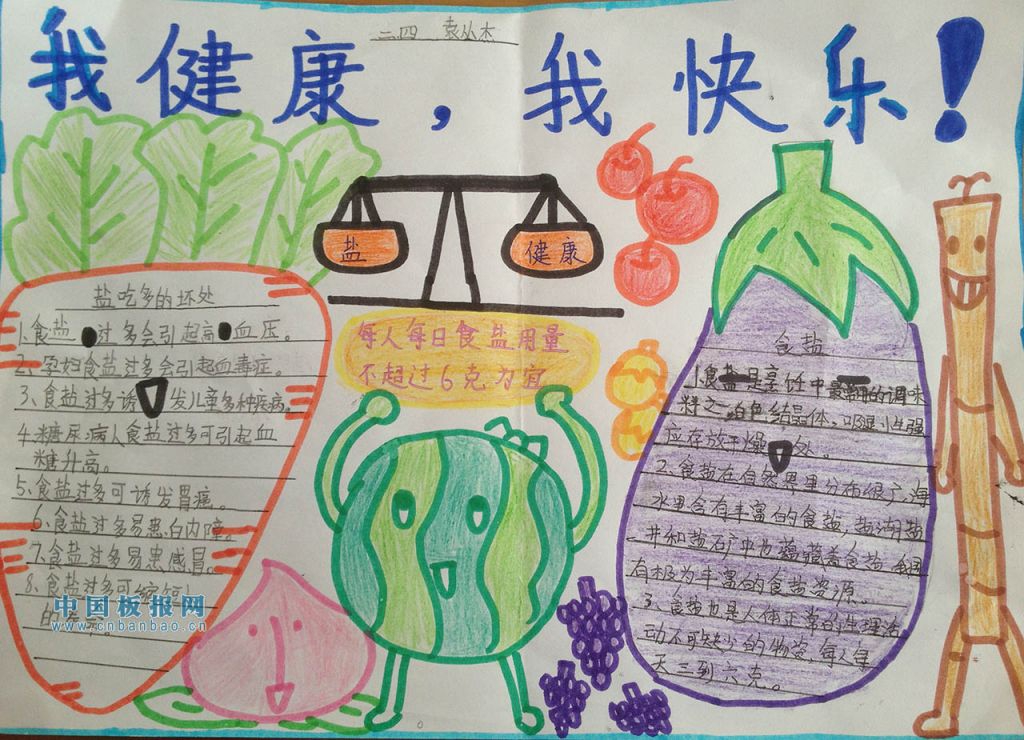 二四 袁丛杰
我健康，我快乐！
盐
健康
每人每日食盐用量
不超过6克为宜
盐吃多的坏处
1、食盐过多会引起高血压。
2、孕妇食盐过多会引起血毒症。
3、食盐过多诱发儿童多种疾病。
4、糖尿病人食盐过多可引起血
糖升高。
5、食盐过多可诱发胃癌。
6、食盐过多易患白内障。
7、食盐过多易患感冒。
8、食盐过多可缩短
的
中国板报网
www.cnbanbao.cn
食盐
1、食盐是烹饪中最常用的调味
料之一。白色结晶体，吸湿性强
应存放于燥处。
2、食盐在自然界里分布很广，海
水里含有丰富的食盐，盐湖，盐
井和盐矿中也蕴藏着食盐，我国
有极为丰富的食盐资源。
3、食盐也是人体正常的生理活
动不可缺少的物质，每人每
天三到六克。